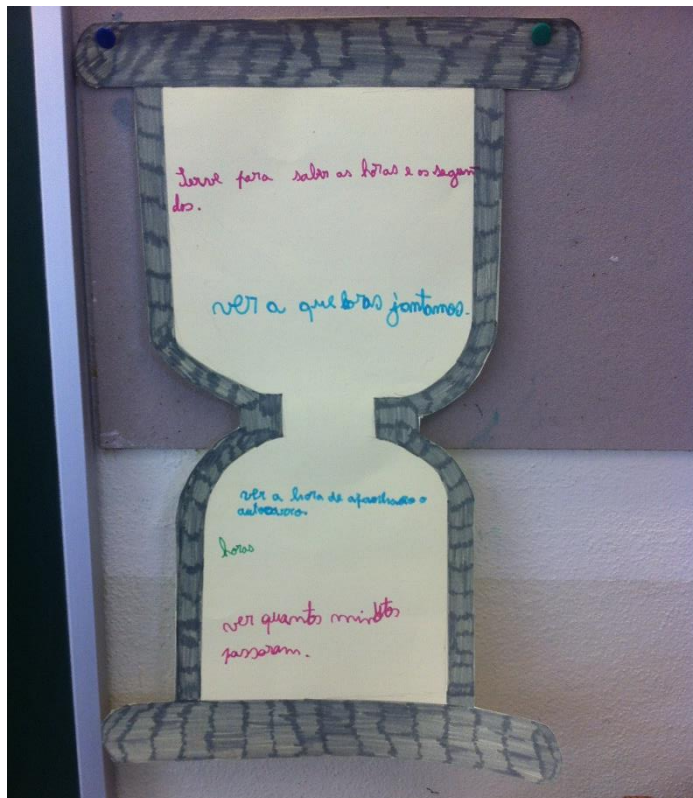 Serve para saber as horas e os segun
dos.
ver a que horas jantamos.
ver a hora de apanharmos o
autocarro.
horas
ver quantos minutos
passaram.